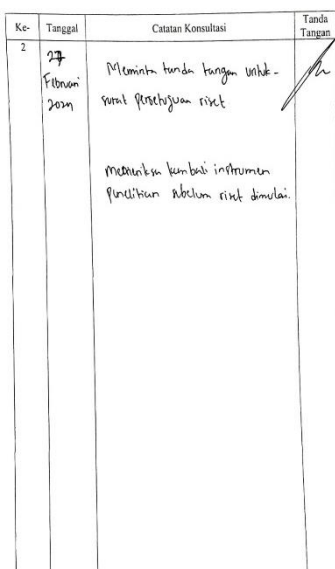 Ke- Tanggal Catatan Konsultasi Tanda Tangan
2
27 Februari
Meminta tanda tangan untuk -
surat persetujuan riset
memeriksa kembali instrumen
penelitian sebelum riset dimulai.